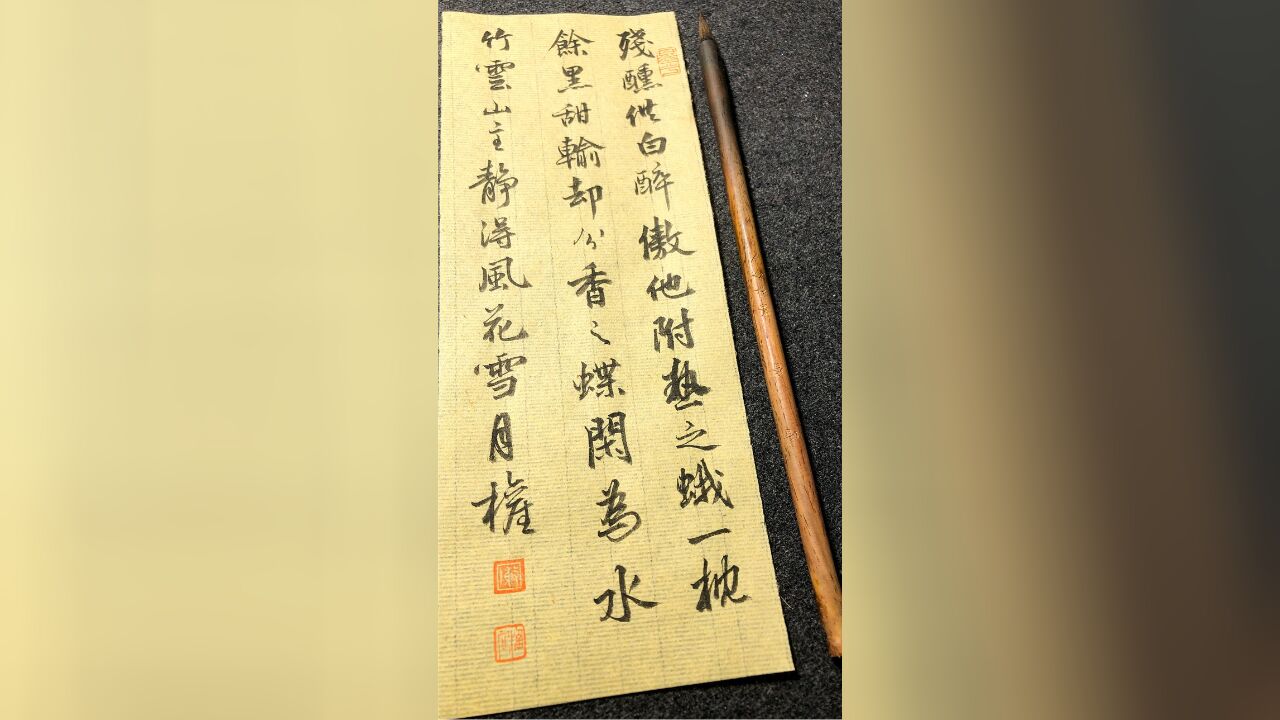 殘醺供白醉傲他附熱之蛾一枕
餘黑甜輸却分香之蝶閑為水
竹雲山主靜得風花雪月權